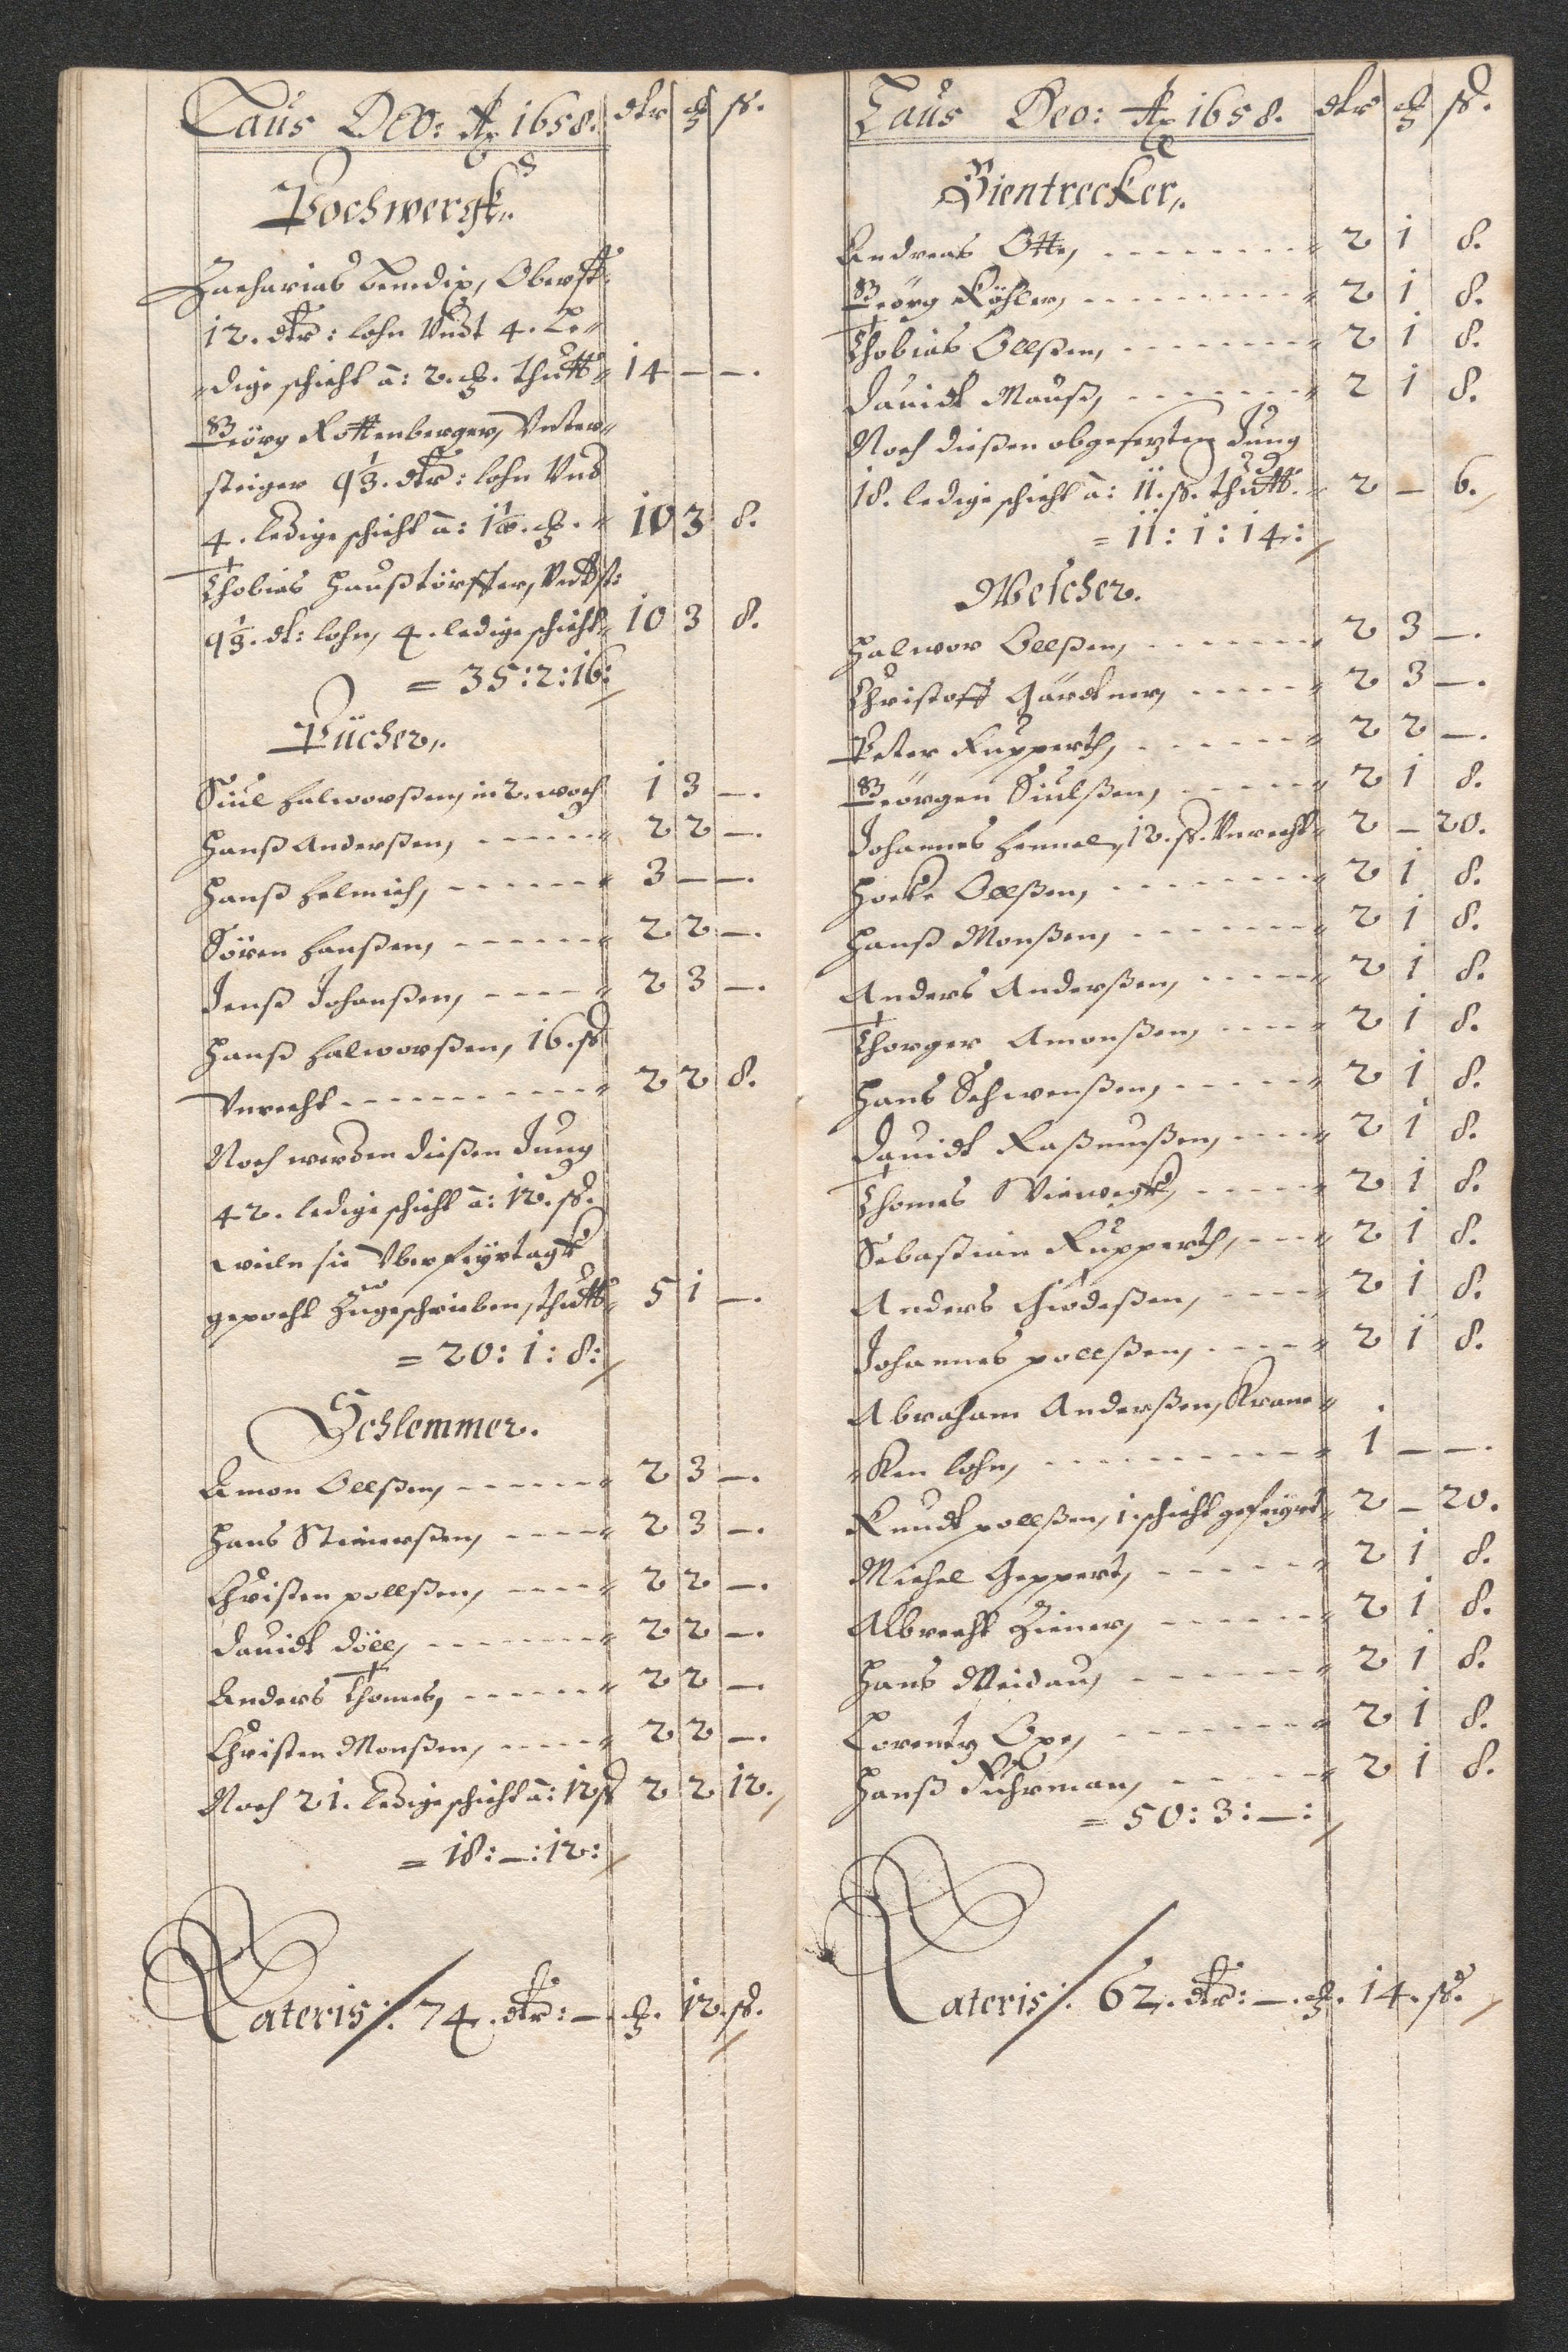 Laus Deo: Ao 1658. dlr ƶ ß.
Pochwergk.
Zacharias Bendix, Oberst:
12. dlr: lohn Undt 4. Le-
dige schicht â: 2. ƶ. thutt 14 — —.
Geörg Rottenberger, Unter-
steiger 9⅓. dlr: lohn Und
4. ledige schicht â: 1½. ƶ. 10 3 8.
Thobias Haußtörffer,
9⅓. dl: lohn, 4. ledige schicht 10 3 8.
= 35:2:16:
Pücher.
Siul Halworßen, in 2. woch 1 3 —.
Hanß Anderßen, 2 2 —.
Hanß Helmich, 3 — —.
Sören Hanßen, 2 2 —.
Jenß Johanßen, 2 3 —.
Hanß Halworßen, 16. ß
Unrecht 2 2 8.
Noch werden dießen Jung
42. ledige schicht â: 12. ß.
weiln sie Uber feyrtagk
gepocht Zugeschrieben, thutt 5 1 —.
= 20:1:8:
Schlemmer.
Amon Ollßen, 2 3 —.
Hans Steinerßen, 2 3 —.
Christen pollßen, 2 2 —.
Dauidt Döll, 2 2 —.
Anders Thomeß, 2 2 —.
Christen Monßen, 2 2 —.
Noch 21. Ledige schicht â: 12 ß 2 2 12.
= 18:—:12:
Lateris: 74. dlr: —. ƶ. 12. ß.
Laus Deo: Ao 1658. dlr ƶ ß.
Hientrecker.
Andreas Otte, 2 1 8.
Geörg Köhler, 2 1 8.
Thobias Ollßen, 2 1 8.
Dauidt Mauß, 2 1 8.
Noch dießen obgesezten Jung
18. ledige schicht â: 11. ß. thutt. 2 — 6.
= 11:1:14:
Wescher.
Halwor Ollßen, 2 3 —.
Christoff Gärdtner, 2 3 —.
Peter Rupperth, 2 2 —.
Geörgen Siulßen, 2 1 8.
Johannes Hennel, 12. ß. Unrecht 2 — 20.
Hoeke Ollßen, 2 1 8.
Hanß Monßen, 2 1 8.
Anders Anderßen, 2 1 8.
Thorger Amonßen, 2 1 8.
Hans Schwenßen, 2 1 8.
Dauidt Raßmußen, 2 1 8.
Thomes Viewegk, 2 1 8.
Sebastian Rupperth, 2 1 8.
Anders Giödeßen, 2 1 8.
Johannes pollßen, 2 1 8.
Abraham Anderßen, Kran-
ken lohn, 1 — —.
Knudt pollßen, 1. schicht gefeyrt 2 — 20.
Michel Geppert, 2 1 8.
Albrecht Ziener, 2 1 8.
Hans Weidau, 2 1 8.
Lorentz Oxe, 2 1 8.
Hanß Fuhrman, 2 1 8.
= 50:3:—:
Lateris: 62. dlr: —. ƶ. 14. ß.